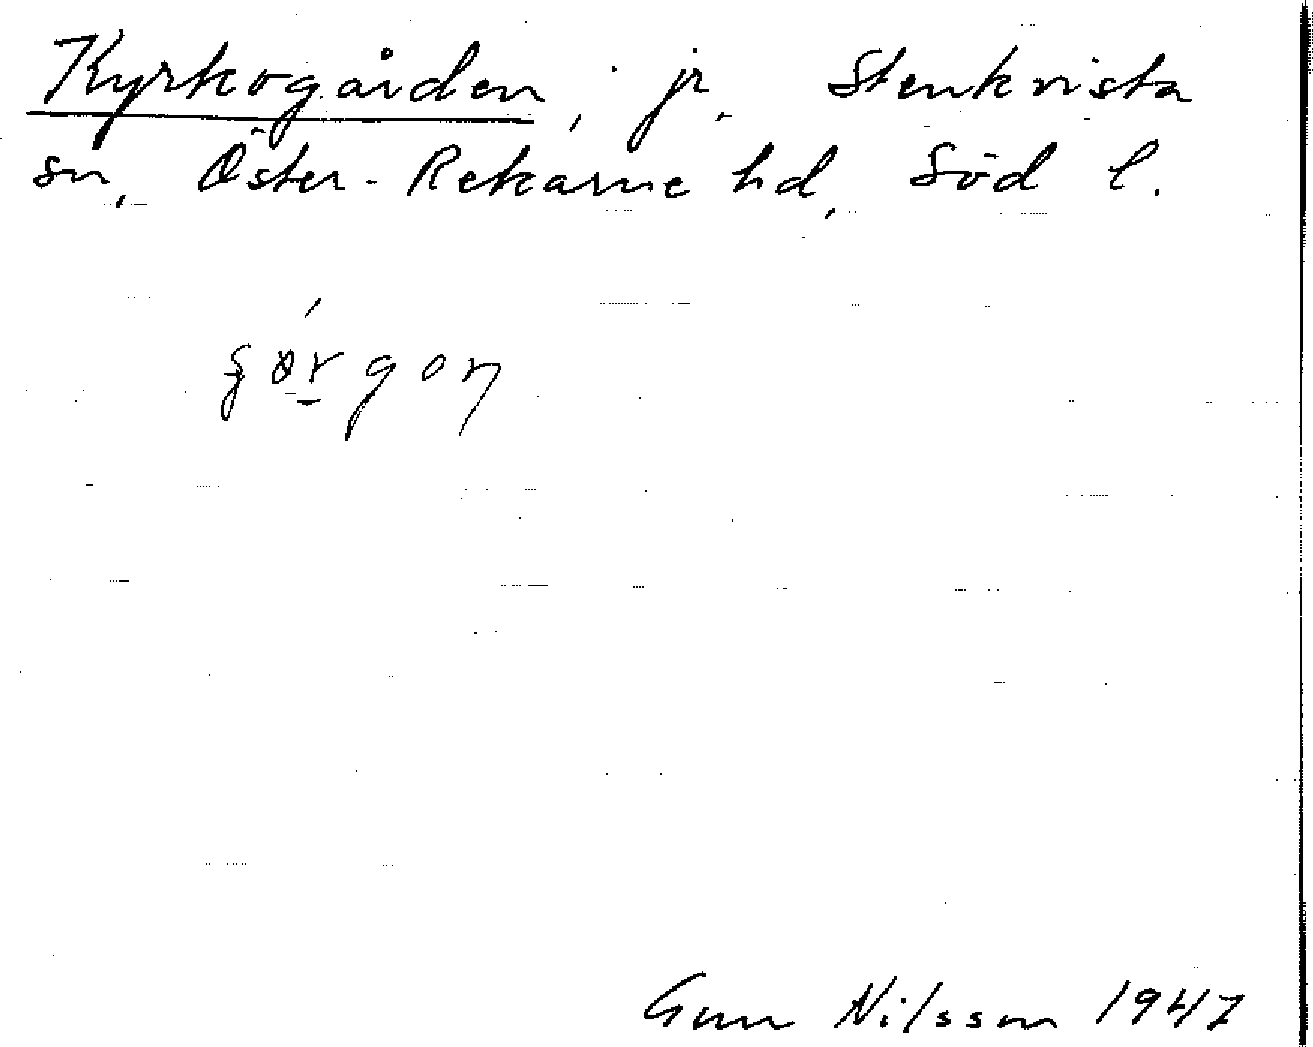 Kyrkogården, jr, Stenkvista
sn, Öster-Rekarne hd, Söd l.
Gun Nilsson 1947